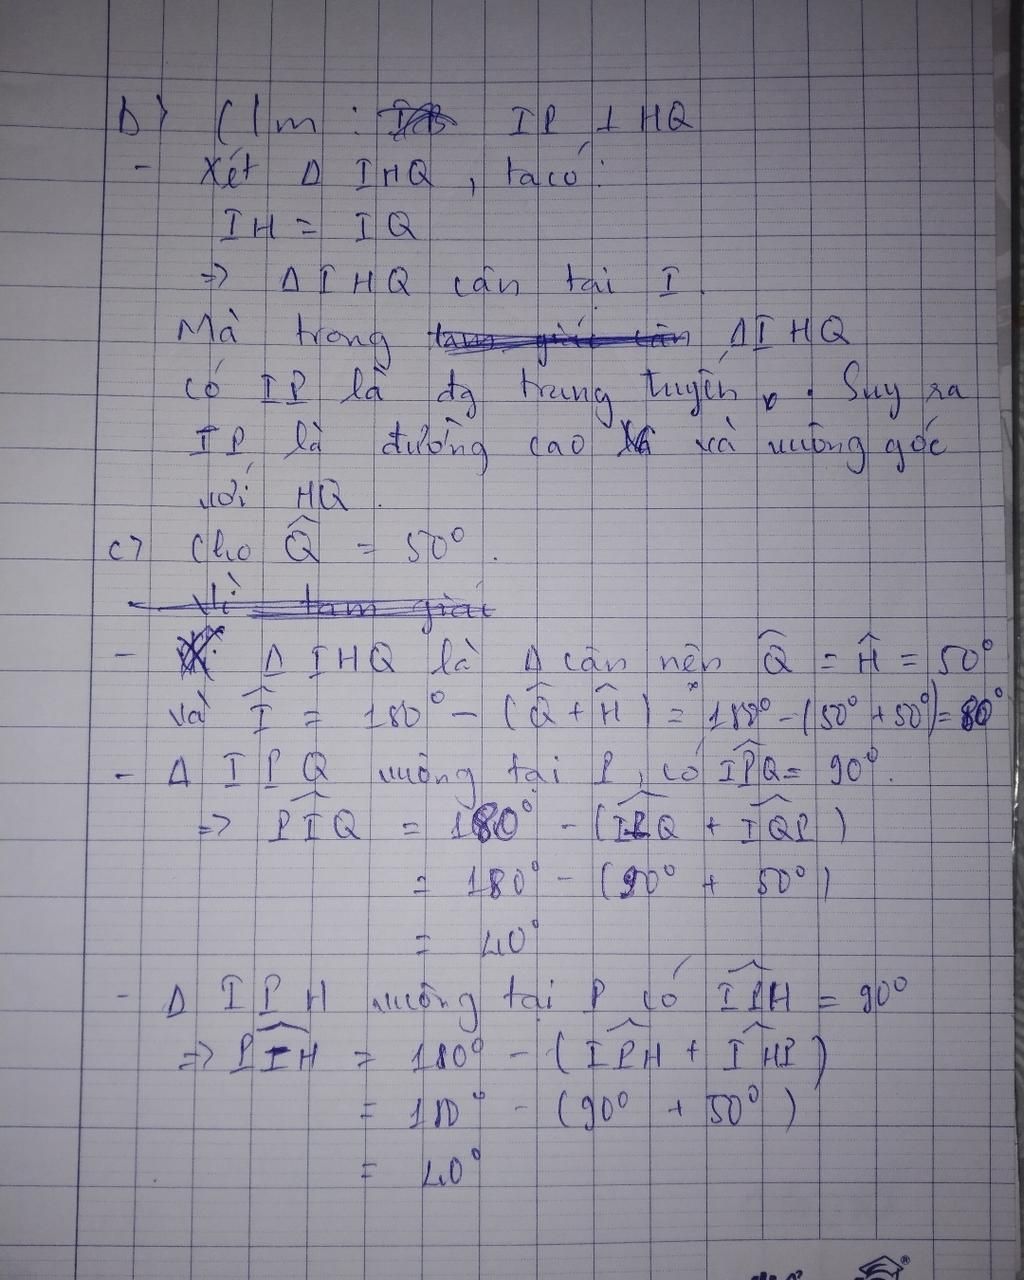 b) C/m : IP ⊥ HQ
- Xét Δ IHQ , ta có :
IH = IQ
=> Δ IHQ cân tại I .
Mà trong ΔIHQ
có IP là đg trung tuyến . Suy ra
IP là đường cao và vuông góc
với HQ .
c) Cho Q̂ = 50° .
- Δ IHQ là Δ cân nên Q̂ = Ĥ = 50°
và Î = 180° - (Q̂ + Ĥ) = 180° - (50° + 50°) = 80°
- Δ IPQ vuông tại P, có IP̂Q = 90° .
=> PÎQ = 180° - (IP̂Q + IQ̂P)
= 180° - (90° + 50°)
= 40°
- Δ IPH vuông tại P có IP̂H = 90°
=> PÎH = 180° - (IP̂H + IĤP)
= 180° - (90° + 50°)
= 40°